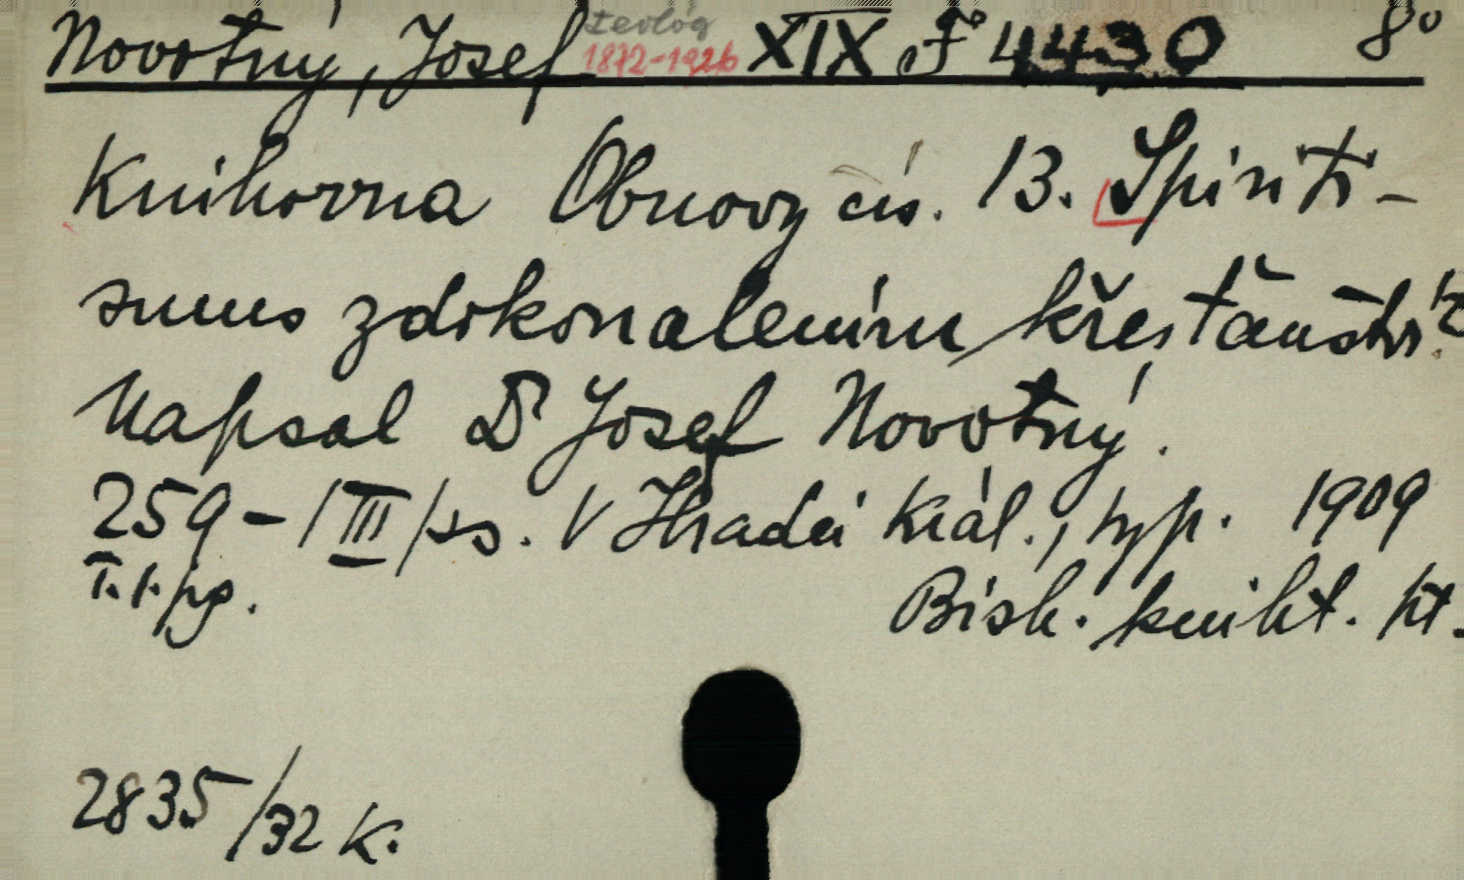 Novotný, Josef teolog 1872-1926 XIX F 4430 8°
Knihovna Obnovy čís. 13. Spiriti-
smus zdokonalením křesťanství?
Napsal Dr Josef Novotný.
259-/III/ss. V Hradci Král., typ. 1909
T.t.pg.
Bisk. kniht. kt.
2835/32 K.